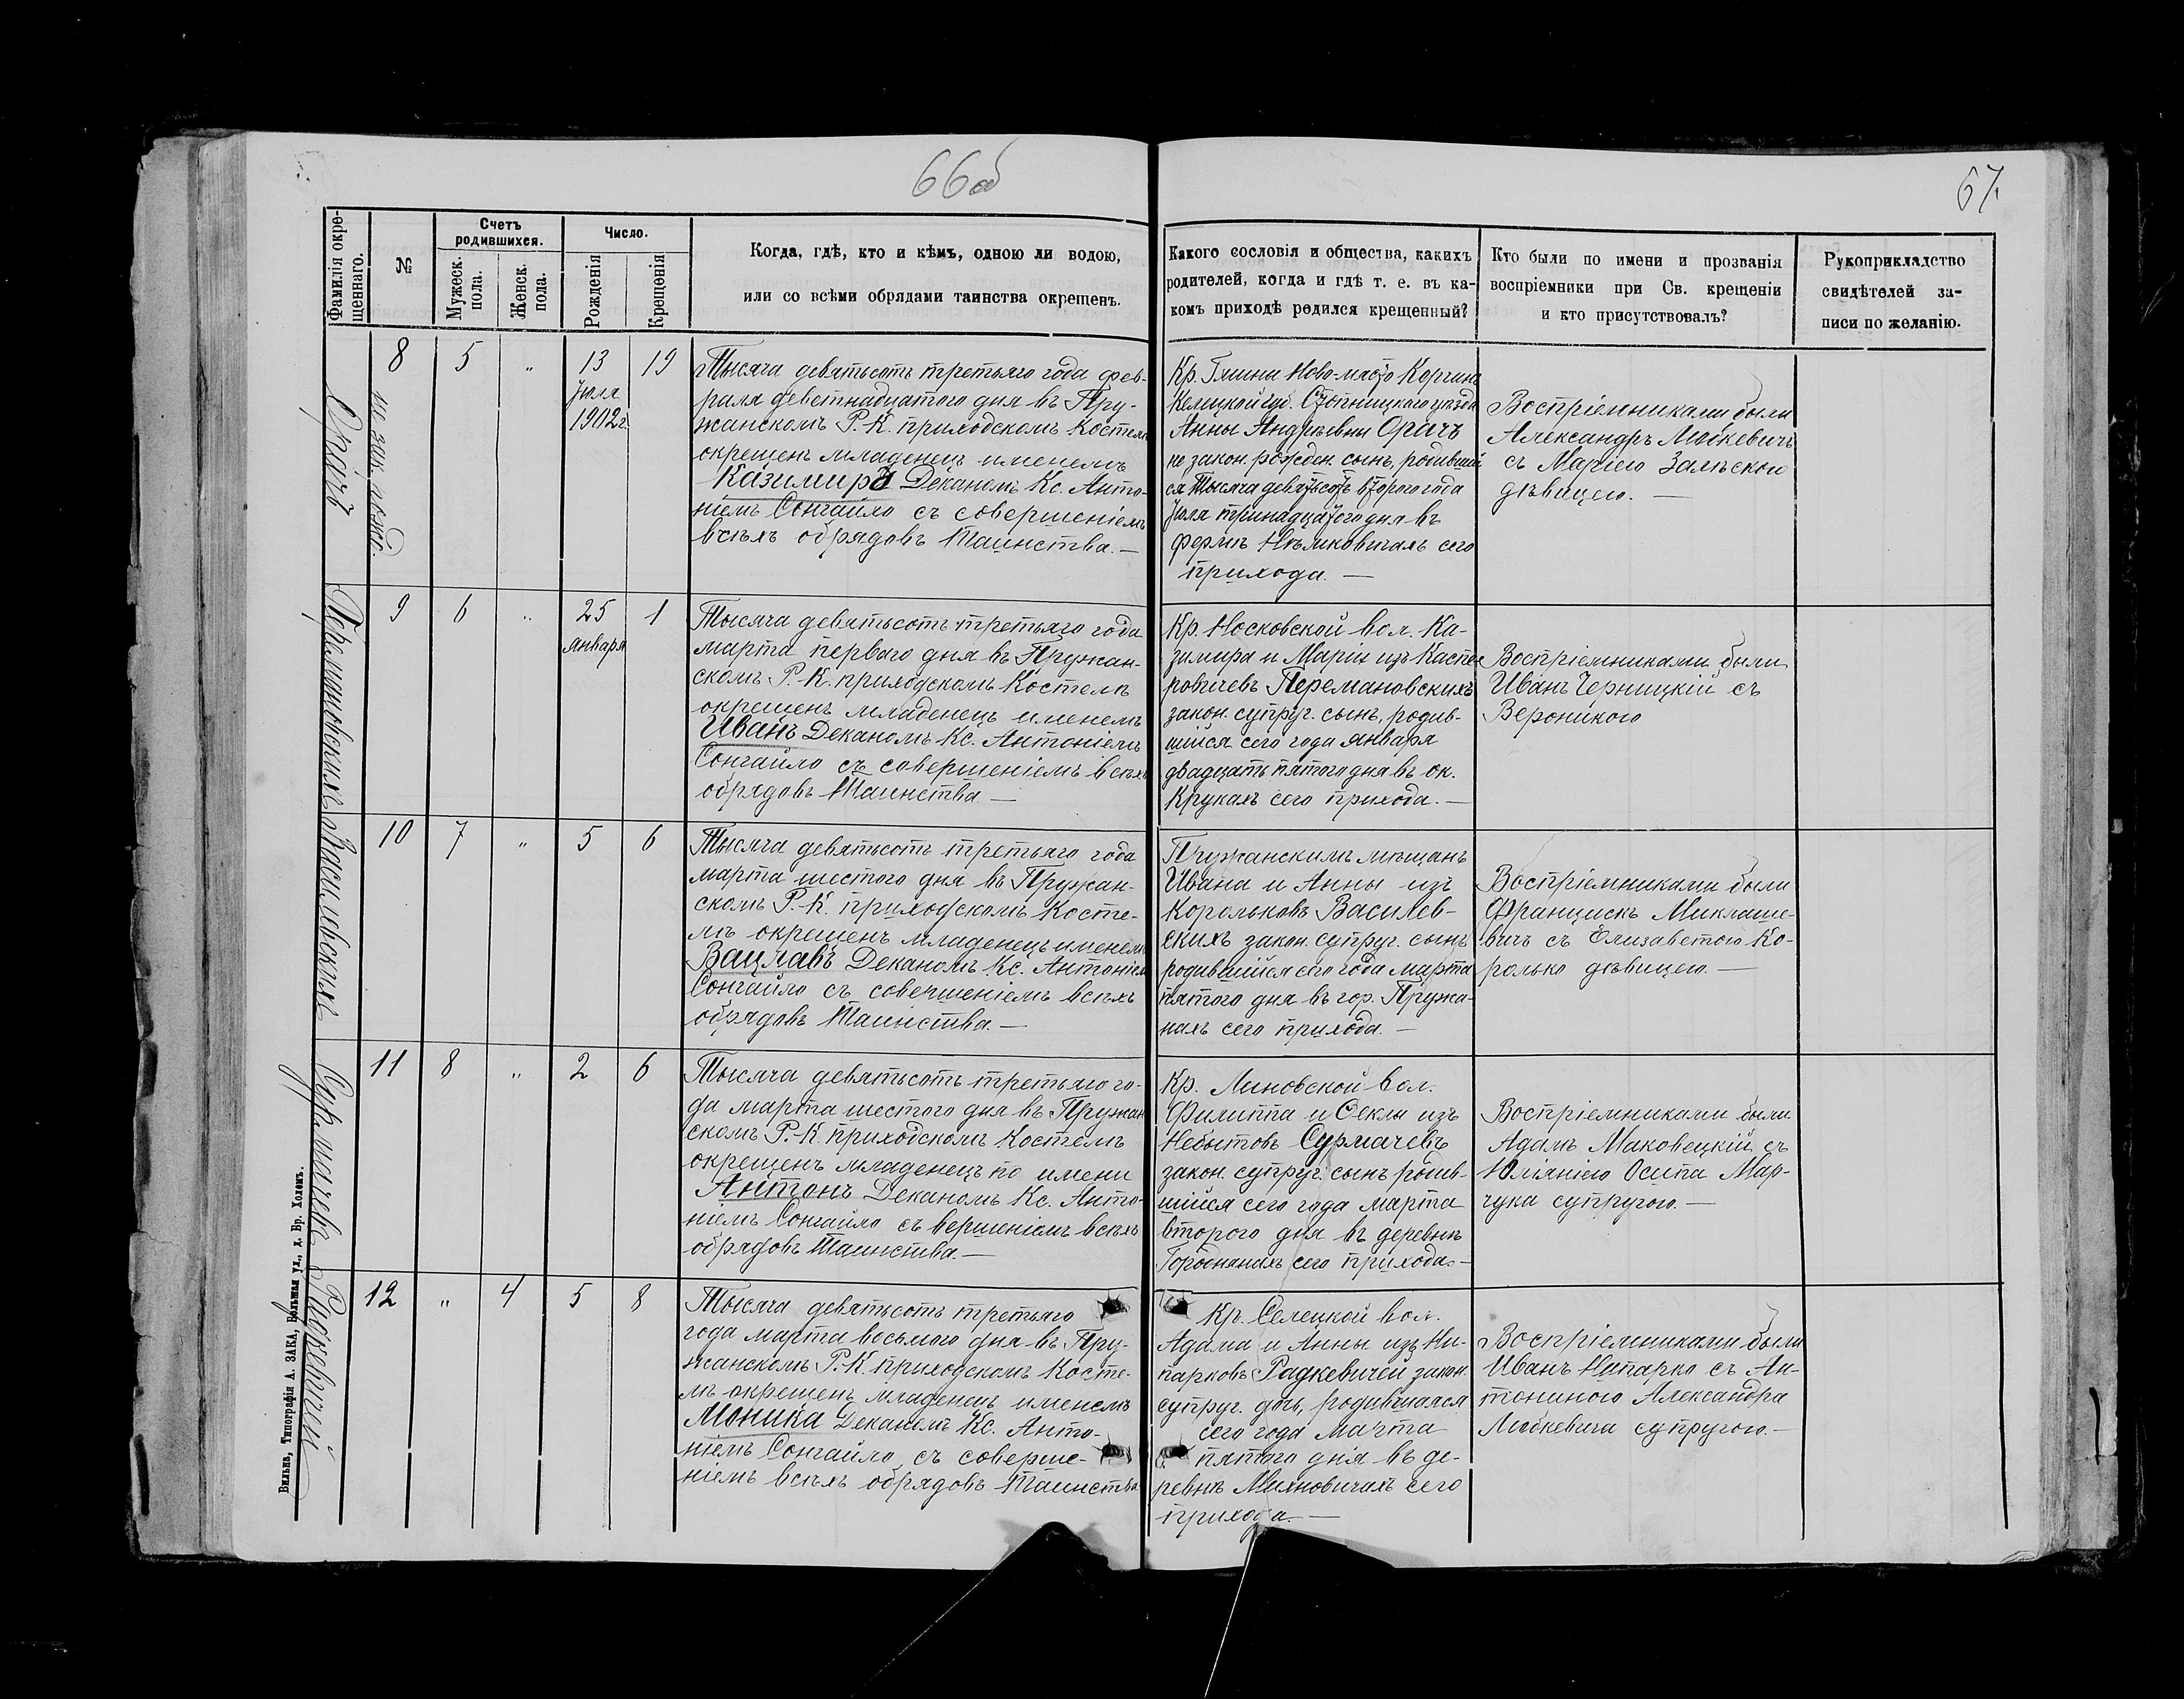 66об
67.
Фамилія окре-
щеннаго.
№
Счетъ
родившихся.
Мужеск.
пола.
Женск.
пола.
Число.
Рожденія
Крещенія
Когда, гдѣ, кто и кѣмъ, одною ли водою,
или со всѣми обрядами таинства окрещенъ.
Какого сословія и общества, какихъ
родителей, когда и гдѣ т. е. въ ка-
комъ приходѣ родился крещенный?
Кто были по имени и прозванія
воспріемники при Св. крещеніи
и кто присутствовалъ?
Рукоприкладство
свидѣтелей за-
писи по желанію.
Орачъ
8
не зак. рожд.
5
"
13
Іюля
1902 г.
19
Тысяча девятьсотъ третьяго года фев-
раля девятнадцатого дня въ Пру-
жанскомъ Р.-К. приходскомъ Костелѣ
окрещенъ младенецъ именемъ
Казимиръ Деканомъ Кс. Анто-
ніемъ Сонгайло съ совершеніемъ
всѣхъ обрядовъ Таинства. —
Кр. Гмины Ново-място Корчинъ
Кѣлецкой губ. Стопницкаго уѣзда
Анны Андреевны Орачъ
не закон. рожден. сынъ, родившій
ся Тысяча девятьсотъ второго года
Іюля тринадцатого дня въ
фермѣ сего
прихода. —
Воспріемниками были
Александръ Мацкевичъ
съ Маріею Залѣскою
дѣвицею. —
Перемановскихъ
9
6
"
25
января
1
Тысяча девятьсотъ третьяго года
марта перваго дня въ Пружан-
скомъ Р.-К. приходскомъ Костелѣ
окрещенъ младенецъ именемъ
Иванъ Деканомъ Кс. Антоніемъ
Сонгайло съ совершеніемъ всѣхъ
обрядовъ Таинства —
Кр. Носковской вол. Ка-
зимира и Маріи изъ Каспе
ровичевъ Перемановскихъ
закон. супруг. сынъ, родив-
шійся сего года января
двадцать пятого дня въ ок.
Крукахъ сего прихода. —
Воспріемниками были
Иванъ Черницкій съ
Вероникою
Василевскихъ
10
7
"
5
6
Тысяча девятьсотъ третьяго года
марта шестого дня въ Пружан-
скомъ Р.-К. приходскомъ Косте-
лѣ окрещенъ младенецъ именемъ
Вацлавъ Деканомъ Кс. Антоніемъ
Сонгайло съ совершеніемъ всѣхъ
обрядовъ Таинства. —
Пружанскимъ мѣщанъ
Ивана и Анны изъ
Корольковъ Василев-
скихъ закон. супруг. сынъ
родившійся сего года марта
пятого дня въ гор. Пружа-
нахъ сего прихода. —
Воспріемниками были
Францискъ Миклаше-
вичъ съ Елизаветою Ко-
ролько дѣвицею. —
Сурмачевъ
11
8
"
2
6
Тысяча девятьсотъ третьяго го-
да марта шестого дня въ Пружан
скомъ Р.-К. приходскомъ Костелѣ
окрещенъ младенецъ по имени
Антонъ Деканомъ Кс. Анто-
ніемъ Сонгайло съ вершеніемъ всѣхъ
обрядовъ Таинства. —
Кр. Линовской вол.
Филиппа и Ѳеклы изъ
Небытовъ Сурмачевъ
закон. супруг. сынъ родив-
шійся сего года марта
второго дня въ деревнѣ
сего прихода. —
Воспріемниками были
Адамъ Маковецкій съ
Юліаніею Осипа Мар-
чука супругою. —
Радкевичей
12
"
4
5
8
Тысяча девятьсотъ третьяго
года марта восьмого дня въ Пру-
жанскомъ Р.-К. приходскомъ Косте-
лѣ окрещенъ младенецъ именемъ
Моника Деканомъ Кс. Анто-
ніемъ Сонгайло съ соверше-
ніемъ всѣхъ обрядовъ Таинства
Кр. Селецкой вол.
Адама и Анны изъ Ни-
парковъ Радкевичей закон.
супруг. дочь, родившаяся
сего года Марта
пятого дня въ де-
ревнѣ Михновичахъ сего
прихода. —
Воспріемниками были
Иванъ Нипарко съ Ан-
тониною Александра
Мацкевича супругою. —
Вильна, Типографія А. ЗАКА, Большая ул., д. Бр. Холемъ.